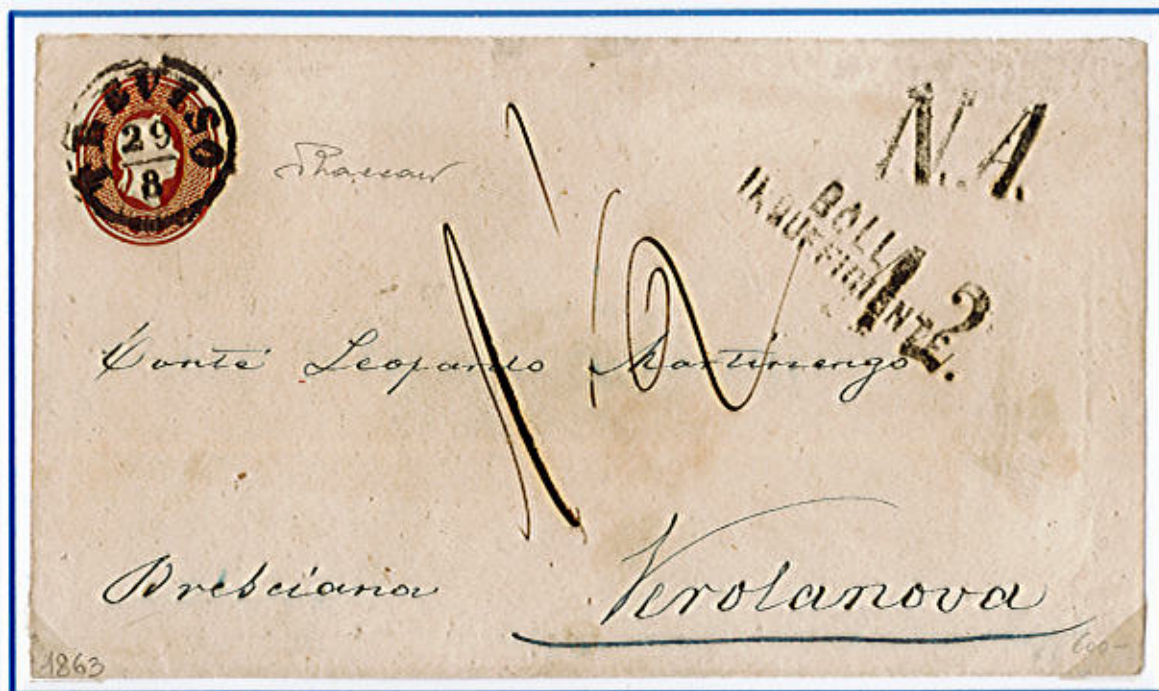 TREVISO
29
8
N.A.
BOLLO
INSUFFICIENTE.
12
12
Conte Leopardo Martinengo
Bresciana
Verolanova
1863
600-